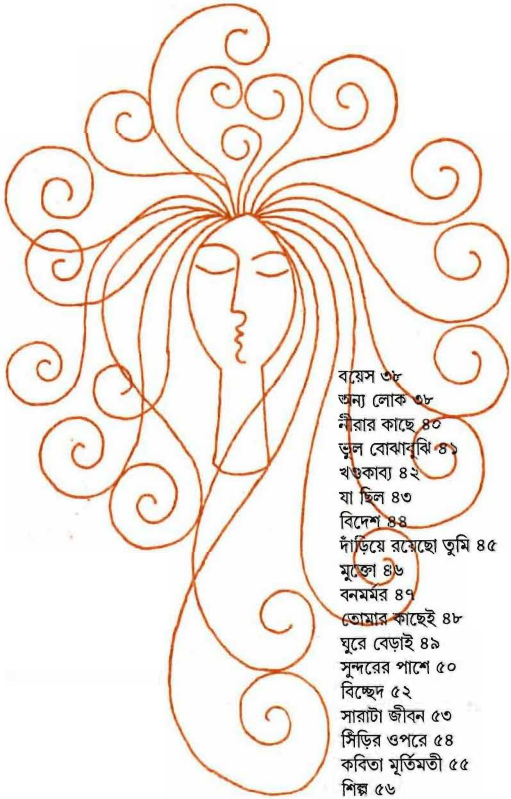 বয়েস ৩৮
অন্য লোক ৩৮
নীরার কাছে ৪০
ভুল বোঝাবুঝি ৪১
খণ্ডকাব্য ৪২
যা ছিল ৪৩
বিদেশ ৪৪
দাঁড়িয়ে রয়েছো তুমি ৪৫
মুক্তো ৪৬
বনমর্মর ৪৭
তোমার কাছেই ৪৮
ঘুরে বেড়াই ৪৯
সুন্দরের পাশে ৫০
বিচ্ছেদ ৫২
সারাটা জীবন ৫৩
সিঁড়ির ওপরে ৫৪
কবিতা মূর্তিমতী ৫৫
শিল্প ৫৬